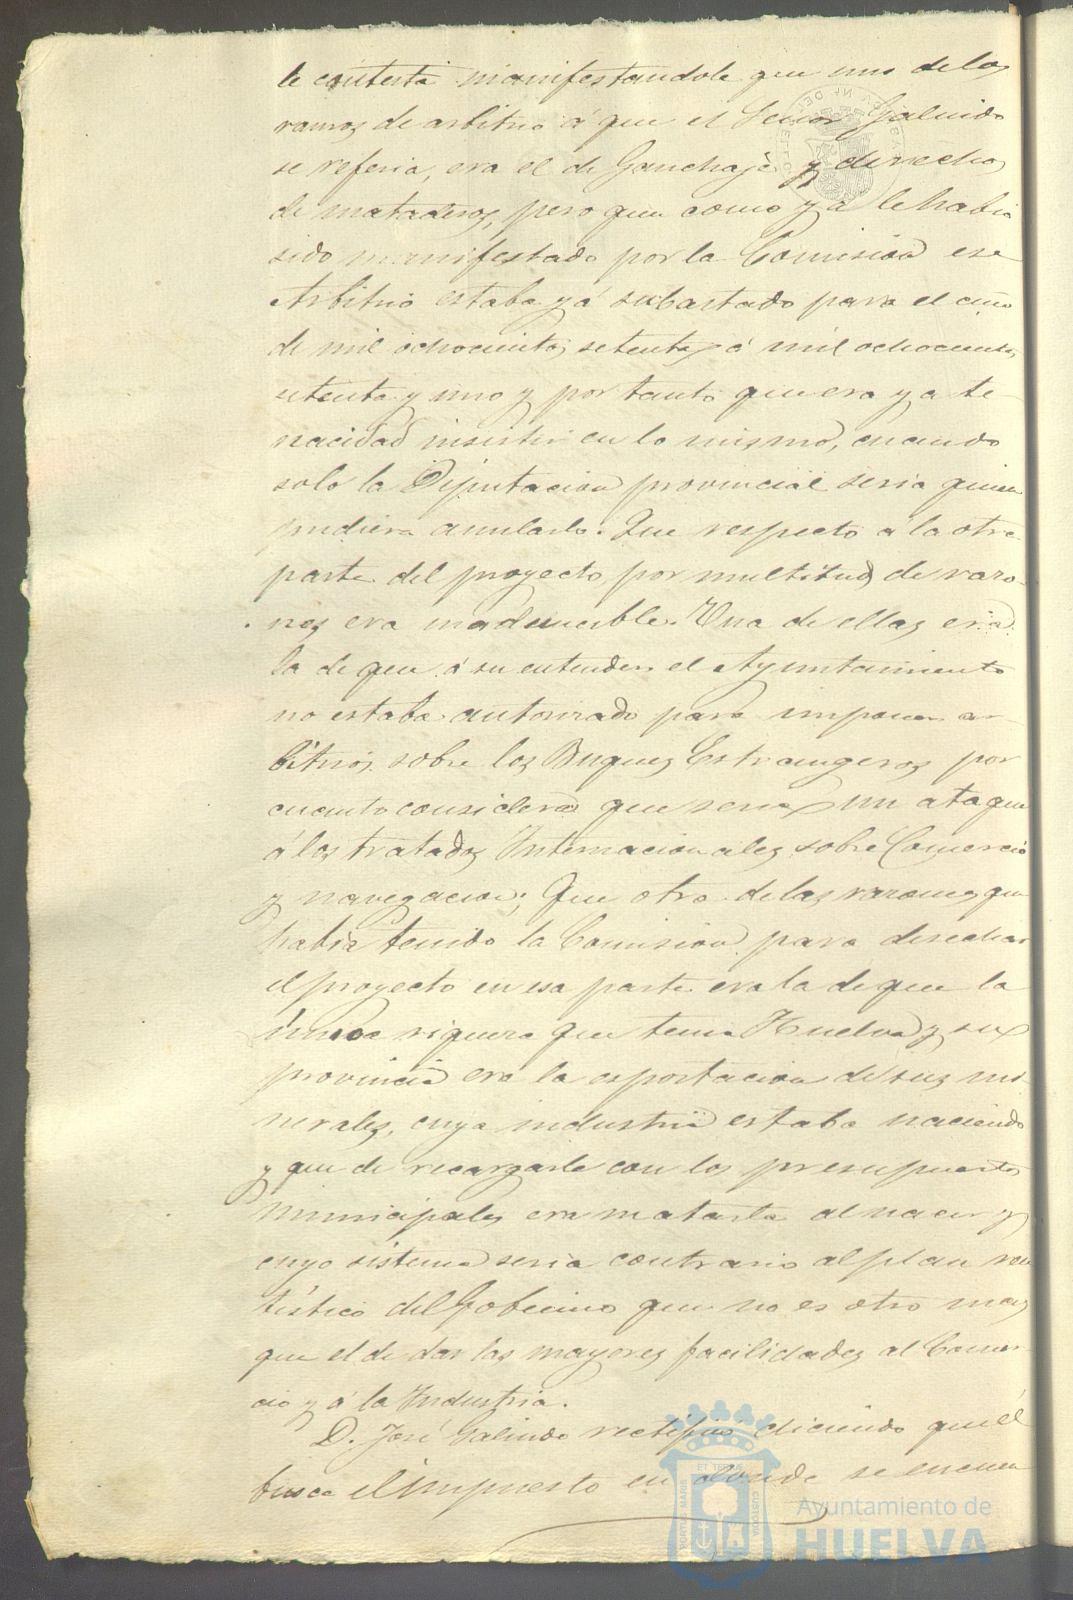 le contesta manifestandole que uno de los
ramos de arbitrio á que el Señor Galindo
se referia, era el de Ganchaje y derechos
de mataderos, pero que como yá le habia
sido manifestado por la Comision ese
Arbitrio estaba yá subastado para el año
de mil ochocientos setenta á mil ochocientos
setenta y uno y por tanto que era ya te-
nacidad insistir en lo mismo, cuando
solo la Diputacion provincial seria quien
pudiera anularlo. Que respecto á la otra
parte del proyecto por multitud de razo-
nes era inadmisible. Una de ellas era
la de que á su entender el Ayuntamiento
no estaba autorizado para imponer ar-
bitrios sobre los Buques Estrangeros por
cuanto considera que seria un ataque
á los tratados Internacionales sobre Comercio
y navegacion; Que otra de las razones que
habia tenido la Comision para desechar
el proyecto en esa parte era la de que la
única riqueza que tenia Huelva y su
provincia era la esportacion de sus mi-
nerales, cuya industria estaba naciendo
y que de recargarla con los presupuestos
municipales era matarla al nacer y
cuyo sistema seria contrario al plan
del Gobierno que no es otro mas
que el de dar las mayores facilidades al Comer-
cio y á la Industria.
D. José Galindo rectificó diciendo que él
busca el impuesto en donde se encuen
Ayuntamiento de
HUELVA